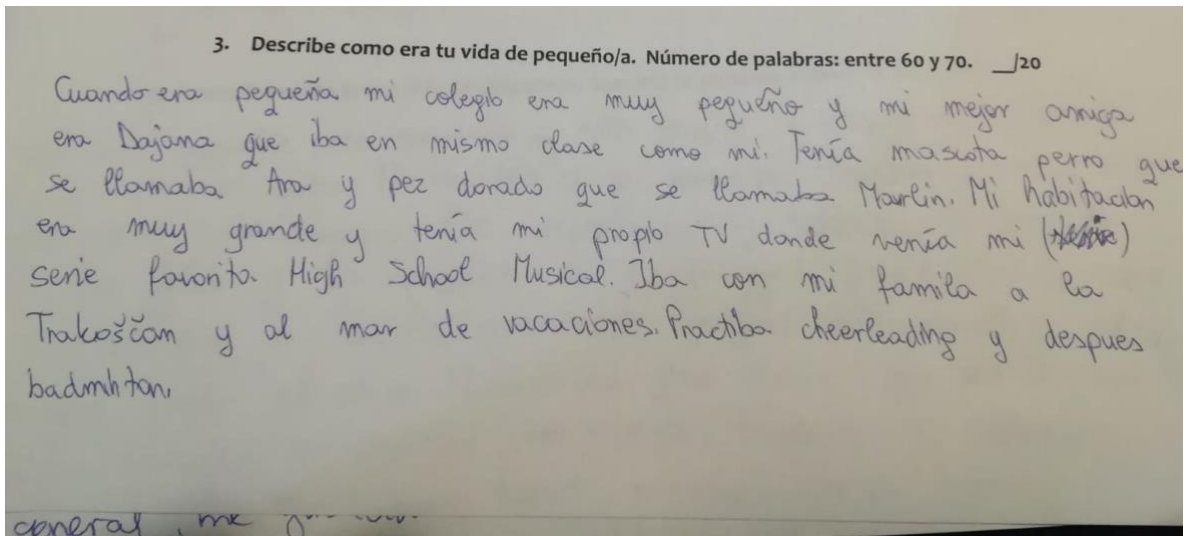 3. Describe como era tu vida de pequeño/a. Número de palabras: entre 60 y 70. __/20
Cuando era pequeña mi colegio era muy pequeño y mi mejor amiga
era Dajana que iba en mismo clase como mi. Tenía mascota perro que
se llamaba Ara y pez dorado que se llamaba Marlin. Mi habitacion
era muy grande y tenía mi propio TV donde venía mi
serie favorito. High School Musical. Iba con mi famila a la
Trakošćan y al mar de vacaciones. Practiba cheerleading y despues
badminton.
general, me